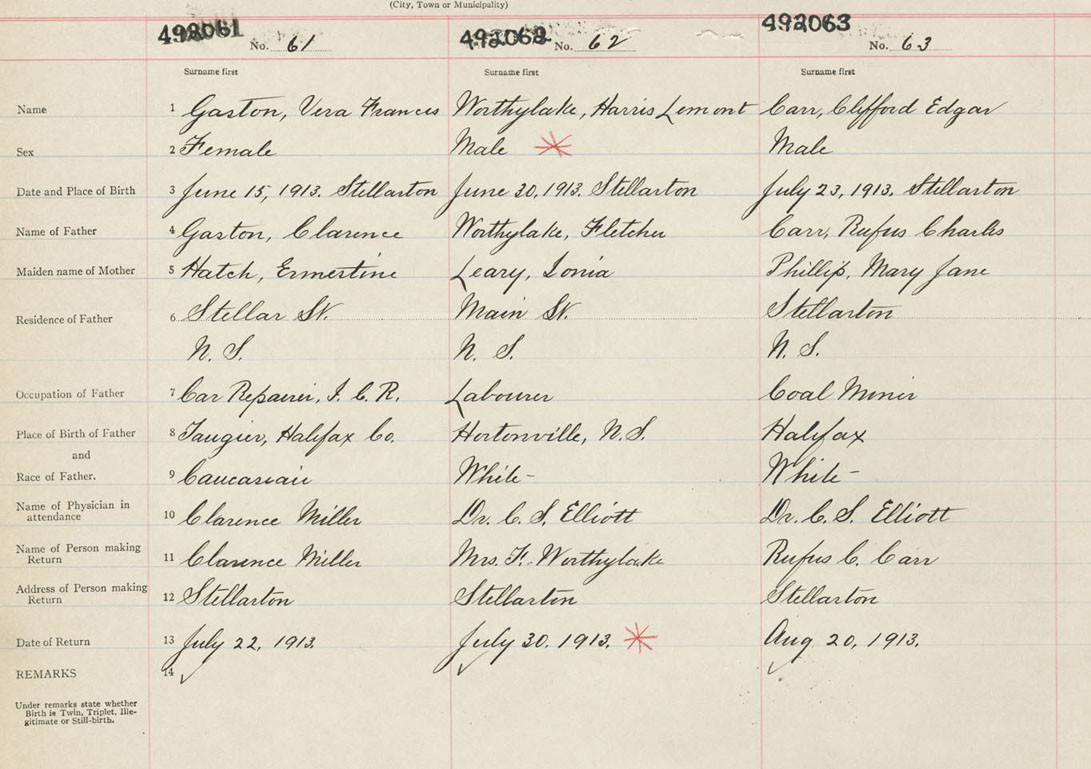 (City, Town or Municipality)
492061 No. 61 492062 No. 62 492063 No. 63
Surname first Surname first Surname first
Name 1 Gaston, Vera Frances Worthylake, Harris Lemont Carr, Clifford Edgar
Sex 2 Female Male Male
Date and Place of Birth 3 June 15, 1913. Stellarton June 30, 1913. Stellarton July 23, 1913. Stellarton
Name of Father 4 Gaston, Clarence Worthylake, Fletcher Carr, Rufus Charles
Maiden name of Mother 5 Hatch, Ermertine Leary, Ionia Phillip, Mary Jane
Residence of Father 6 Stellar St. Main St. Stellarton
N. S. N. S. N. S.
Occupation of Father 7 Car Repairer, I. C. R. Labourer Coal Miner
Place of Birth of Father 8 Taugier, Halifax Co. Hortonville, N.S. Halifax
and
Race of Father. 9 Caucasian White- White-
Name of Physician in
attendance 10 Clarence Miller Dr. C. S. Elliott Dr. C. S. Elliott
Name of Person making
Return 11 Clarence Miller Mrs. F. Worthylake Rufus C. Carr
Address of Person making
Return 12 Stellarton Stellarton Stellarton
Date of Return 13 July 22, 1913. July 30. 1913. Aug 20, 1913.
REMARKS 14
Under remarks state whether
Birth is Twin, Triplet, Ille-
gitimate or Still-birth.